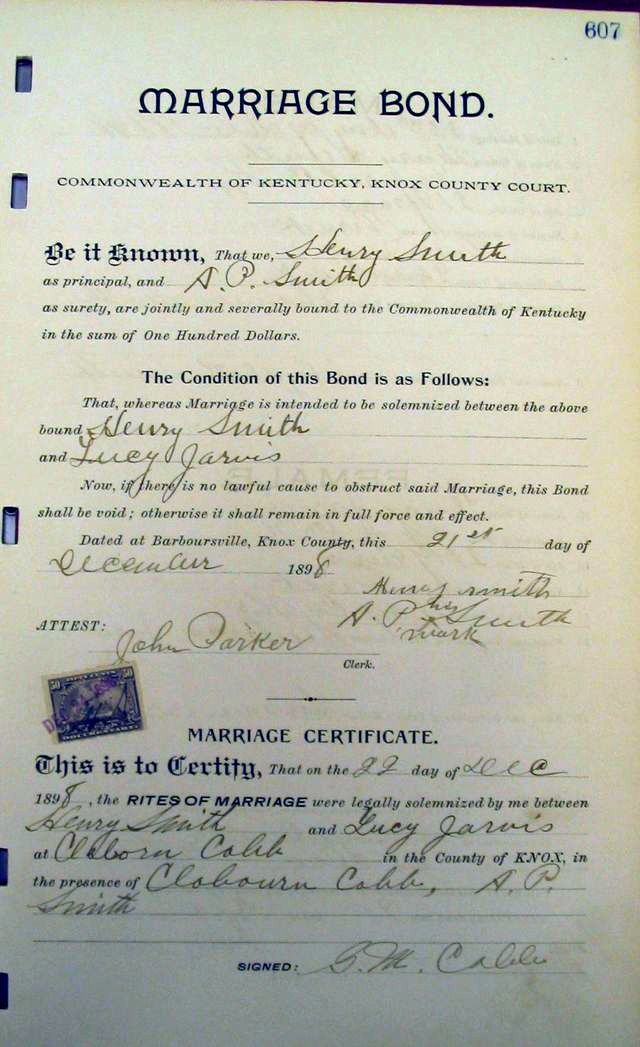 607
MARRIAGE BOND.
COMMONWEALTH OF KENTUCKY, KNOX COUNTY COURT.
Be it Known, That we, Henry Smith
as principal, and A. P. Smith
as surety, are jointly and severally bound to the Commonwealth of Kentucky
in the sum of One Hundred Dollars.
The Condition of this Bond is as Follows:
That, whereas Marriage is intended to be solemnized between the above
bound Henry Smith
and Lucy Jarvis
Now, if there is no lawful cause to obstruct said Marriage, this Bond
shall be void; otherwise it shall remain in full force and effect.
Dated at Barboursville, Knox County, this 21st day of
December 1898
Henry Smith
A. P. his Smith
mark
ATTEST:
John Parker
Clerk.
50 50
MARRIAGE CERTIFICATE.
This is to Certify, That on the 22 day of Dec
1898, the RITES OF MARRIAGE were legally solemnized by me between
Henry Smith and Lucy Jarvis
at Claborn Cobb in the County of KNOX, in
the presence of Clabourn Cobb, A. P.
Smith
SIGNED: G. M. Cobb